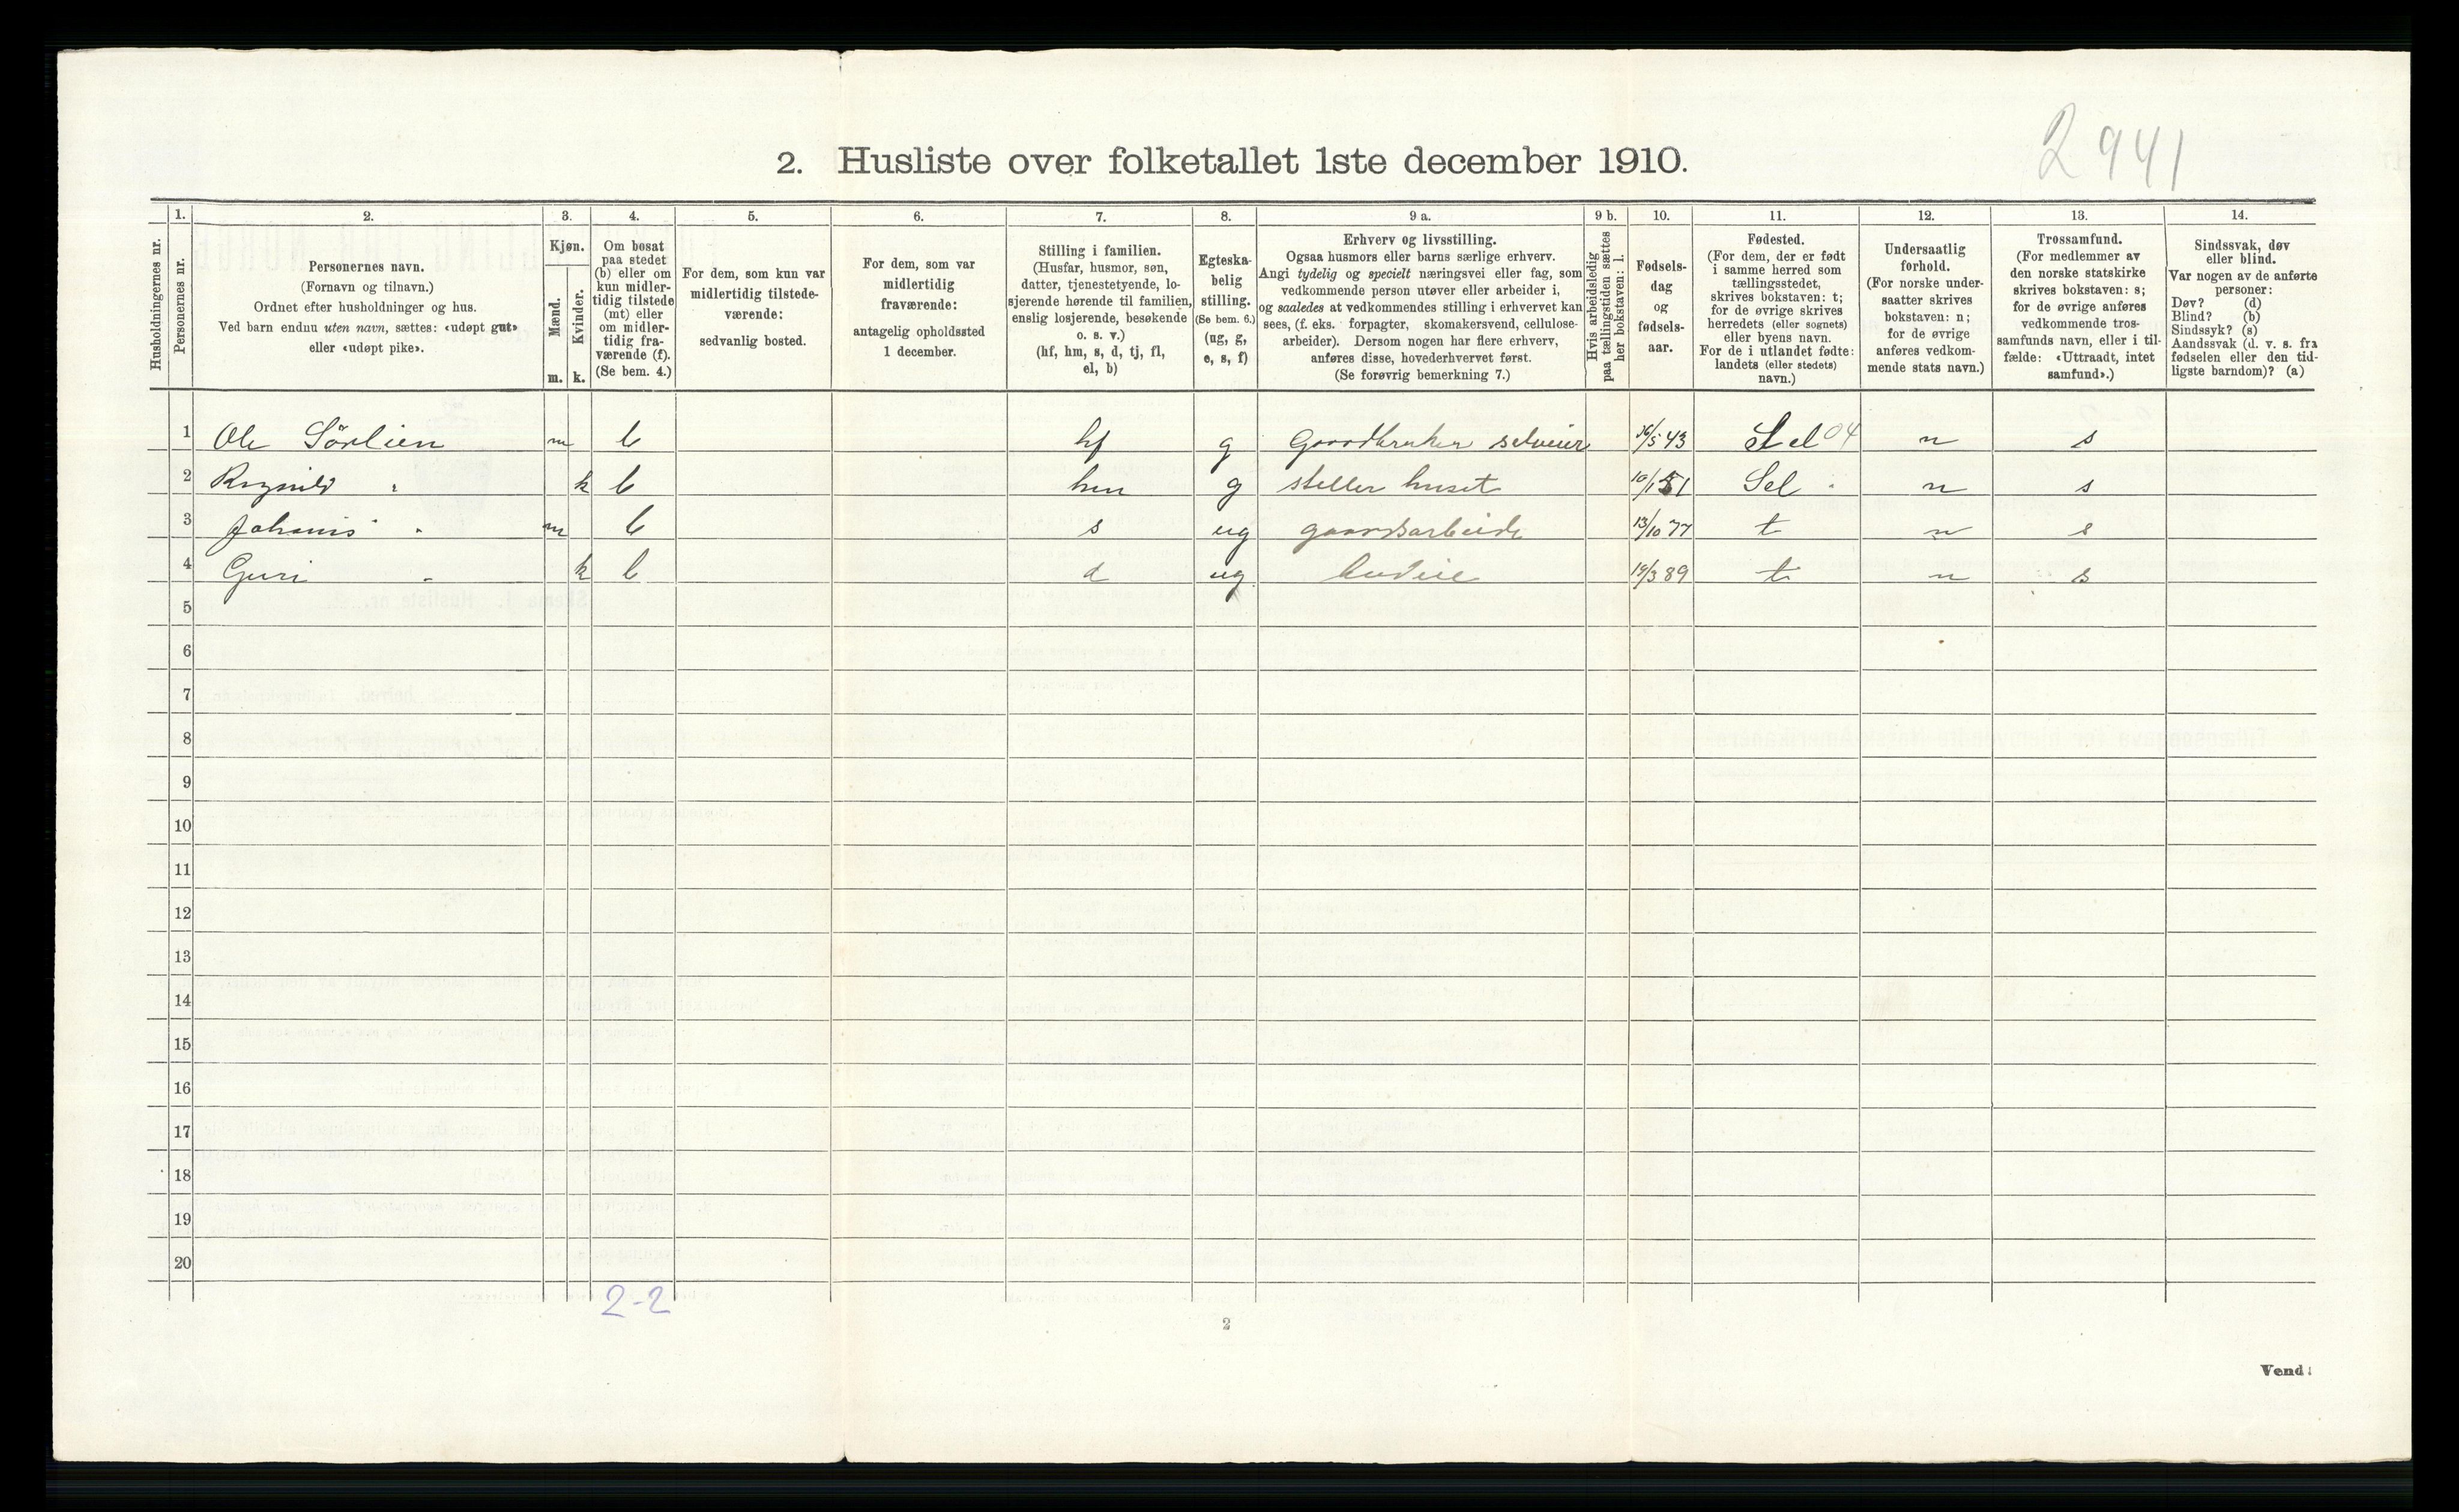 2941
2. Husliste over folketallet 1ste december 1910.
Husholdningernes nr.
1.
Personernes nr.
2.
Personernes navn.
(Fornavn og tilnavn.)
Ordnet efter husholdninger og hus.
Ved barn endnu uten navn, sættes: «udøpt gut»
eller «udøpt pike».
3.
Kjøn.
Mænd.
Kvinder.
m. k.
4.
Om bosat
paa stedet
(b) eller om
kun midler-
tidig tilstede
(mt) eller
om midler-
tidig fra-
værende (f).
(Se bem. 4.)
5.
For dem, som kun var
midlertidig tilstede-
værende:
sedvanlig bosted.
6.
For dem, som var
midlertidig
fraværende:
antagelig opholdssted
1 december.
7.
Stilling i familien.
(Husfar, husmor, søn,
datter, tjenestetyende, lo-
sjerende hørende til familien,
enslig losjerende, besøkende
o. s. v.)
(hf, hm, s, d, tj, fl,
el, b)
8.
Egteska-
belig
stilling.
(Se bem. 6.)
(ug, g,
e, s, f)
9 a.
Erhverv og livsstilling.
Ogsaa husmors eller barns særlige erhverv.
Angi tydelig og specielt næringsvei eller fag, som
vedkommende person utøver eller arbeider i,
og saaledes at vedkommendes stilling i erhvervet kan
sees, (f. eks. forpagter, skomakersvend, cellulose-
arbeider). Dersom nogen har flere erhverv,
anføres disse, hovederhvervet først.
(Se forøvrig bemerkning 7.)
9 b.
Hvis arbeidsledig
paa tællingstiden sættes
her bokstaven: l.
10.
Fødsels-
dag
og
fødsels-
aar.
11.
Fødested.
(For dem, der er født
i samme herred som
tællingsstedet,
skrives bokstaven: t;
for de øvrige skrives
herredets (eller sognets)
eller byens navn.
For de i utlandet fødte:
landets (eller stedets)
navn.)
12.
Undersaatlig
forhold.
(For norske under-
saatter skrives
bokstaven: n;
for de øvrige
anføres vedkom-
mende stats navn.)
13.
Trossamfund.
(For medlemmer av
den norske statskirke
skrives bokstaven: s;
for de øvrige anføres
vedkommende tros-
samfunds navn, eller i til-
fælde: «Uttraadt, intet
samfund».)
14.
Sindssvak, døv
eller blind.
Var nogen av de anførte
personer:
Døv? (d)
Blind? (b)
Sindssyk? (s)
Aandssvak (d. v. s. fra
fødselen eller den tid-
ligste barndom)? (a)
1 Ole Sörlien m b hf g Gaardbruker selveier 16/5 43 Sel 04 n s
2 Ragnild " k b hm g steller huset 10/1 51 Sel " n s
3 Johanis " m b s ug gaardsarbeide 13/10 77 t n s
4 Guri " k b d ug budeie 19/3 89 t n s
5
6
7
8
9
10
11
12
13
14
15
16
17
18
19
20
2-2
2
Vend!